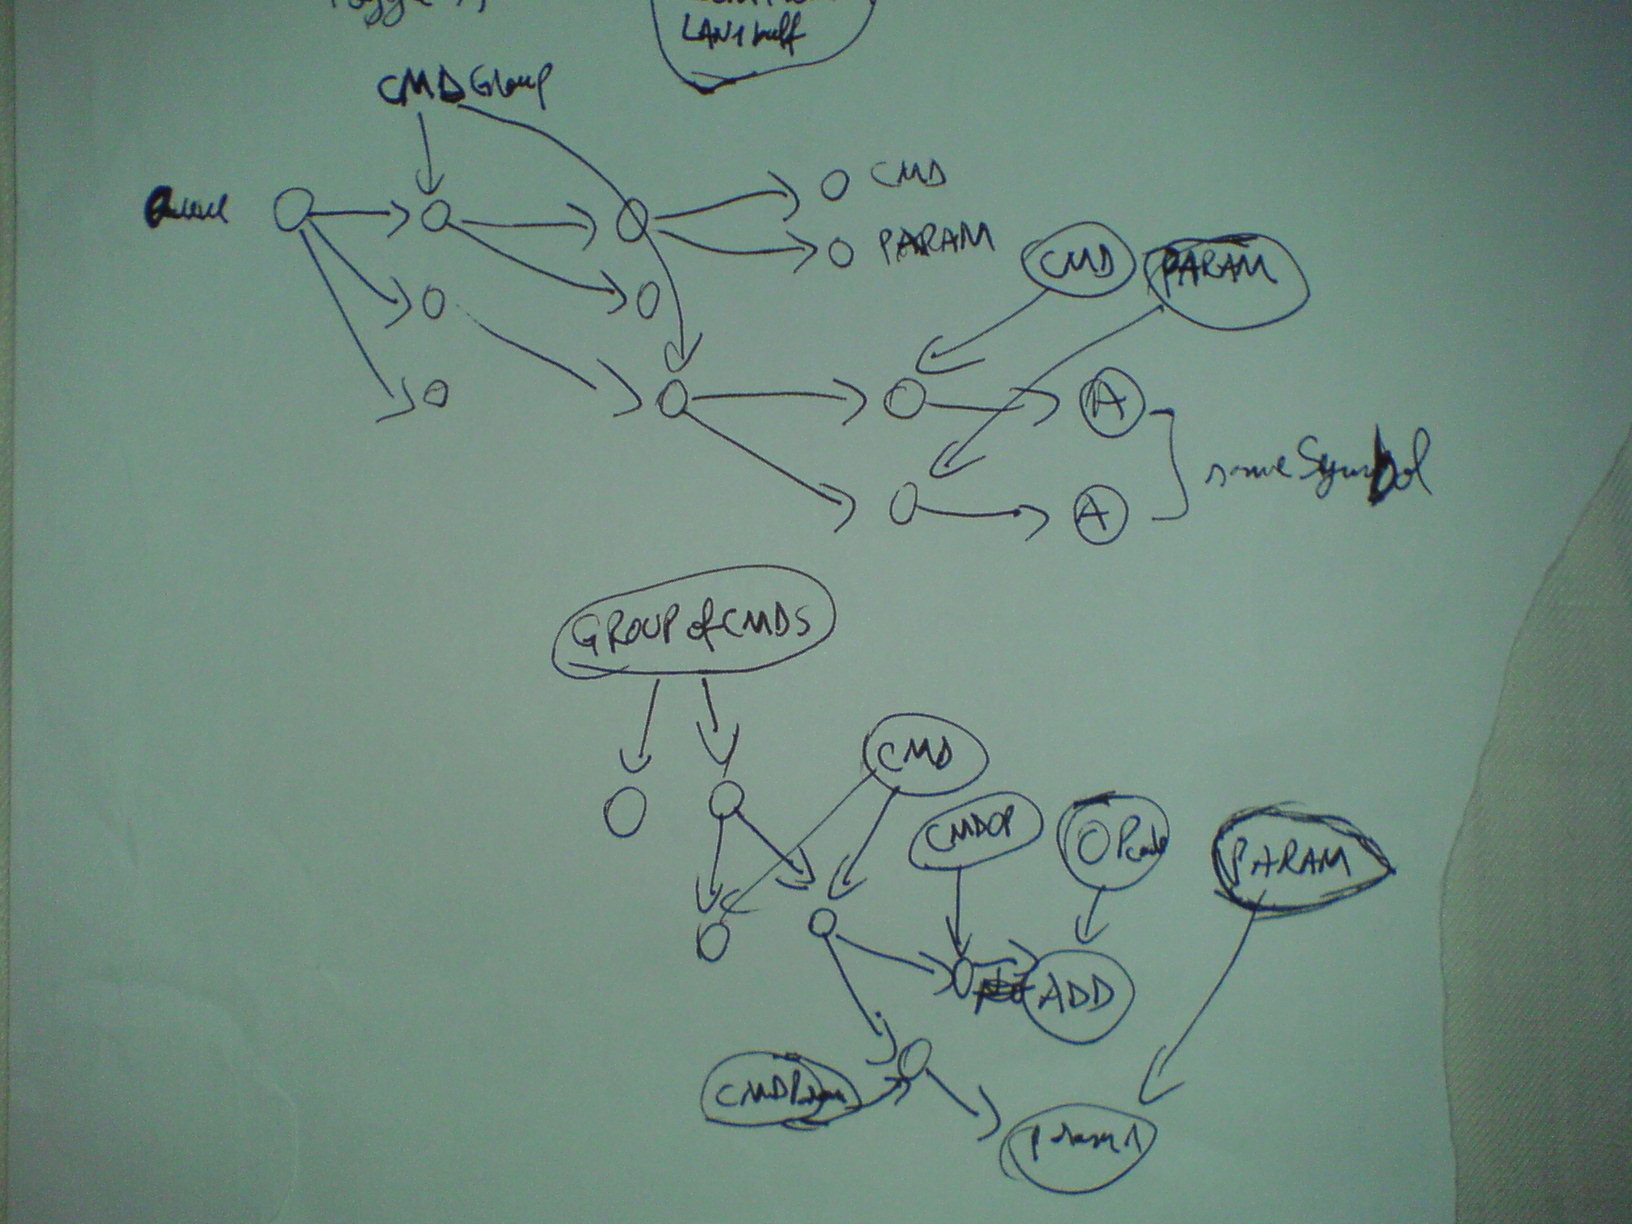 LAN1 buff
CMD Group
Queue
CMD
PARAM
CMD
PARAM
A
A
same Symbol
GROUP of CMDS
CMD
CMDOP
OPcode
PARAM
ADD
CMDParam
Param1